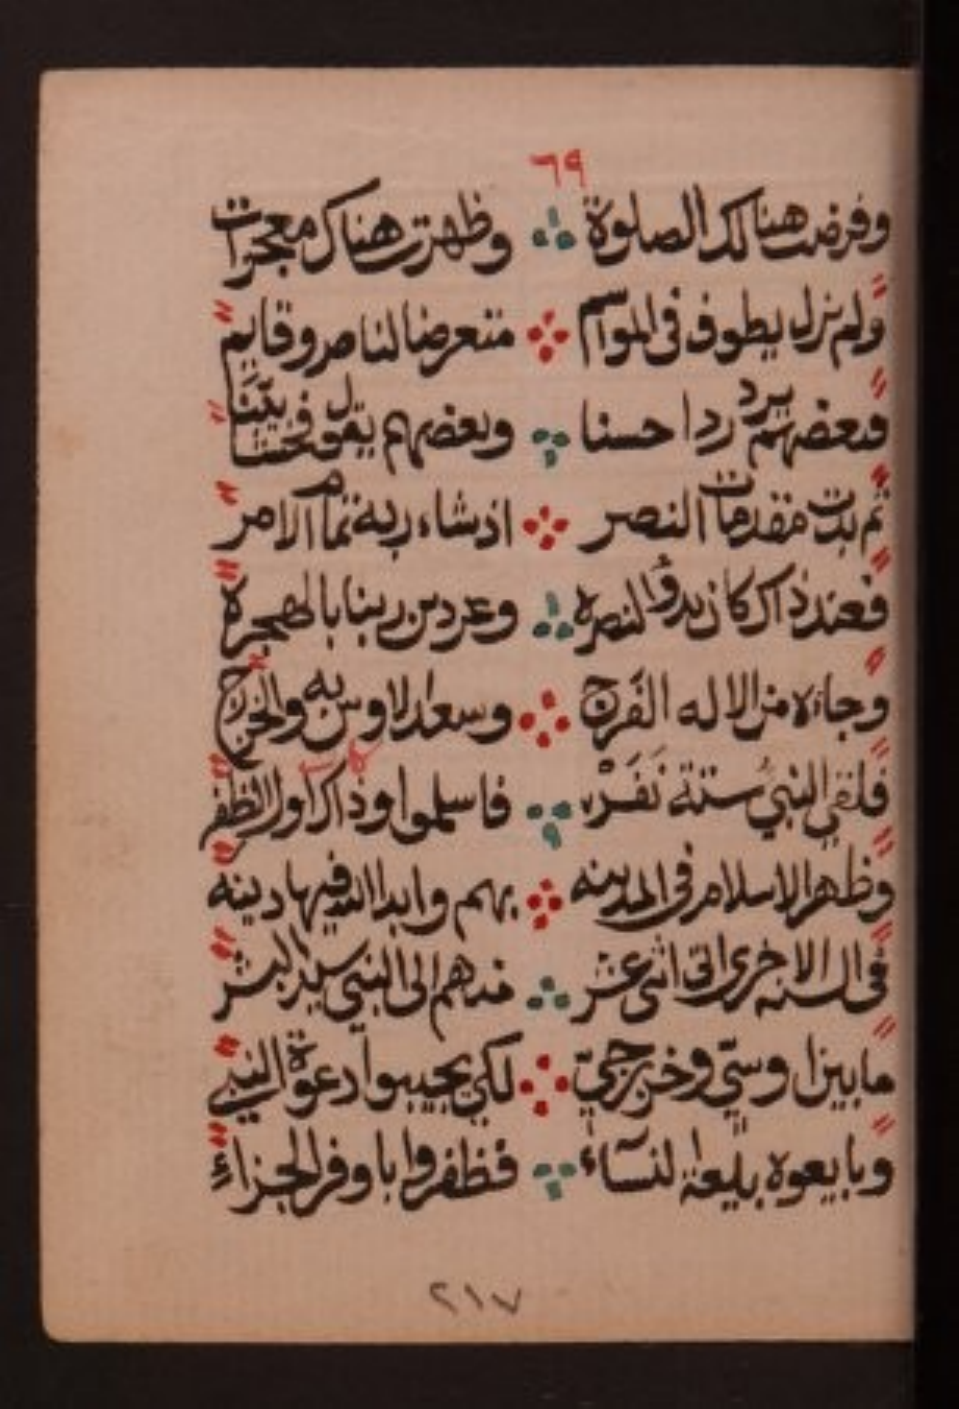 ٦٩
وفرضت هنالك الصلوة وظهرت هناك معجزات
ولم يزل يطوف فى المواسم متعرضا لناصر وقايم
فبعضهم يرد ردا حسنا وبعضهم يقول
ثم بدت مقدمات النصر اذ شاء ربه تمام الامر
فعند ذاك كان بدؤ النصره وعد من ربنا بالهجرة
وجاءه من الاله الفَرج وسعد الاوس به والخزرج
فلقي النبي ستة نَفَرْ فاسلموا وذاك اول الظفر
وظهر الاسلام فى المدينه بهم وابدا الله فيها دينه
فى السنه الاخرى اتى اثنى عشر منهم الى النبي سيد البشر
ما بين اوسيّ وخزرجيّ لكي يجيبوا دعوة النبي
وبايعوه بيعة النسآء فظفروا باوفر الجزاء
٢١٧